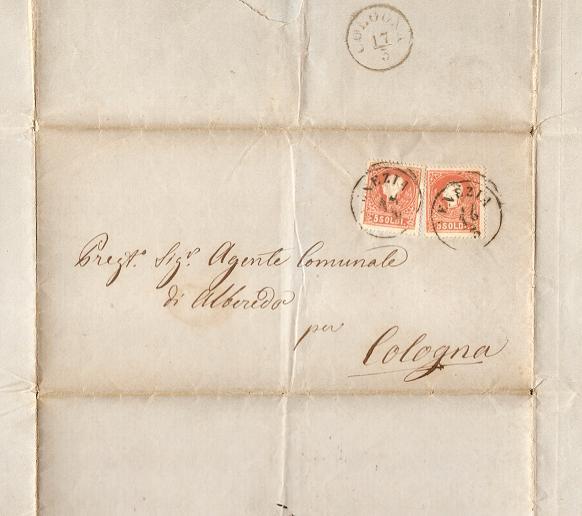 COLOGNA
17
5
VENEZIA
VENEZIA
16
5
5 SOLDI
5 SOLDI
Pregt.o Sigr. Agente Comunale
di Alberedo
per
Cologna